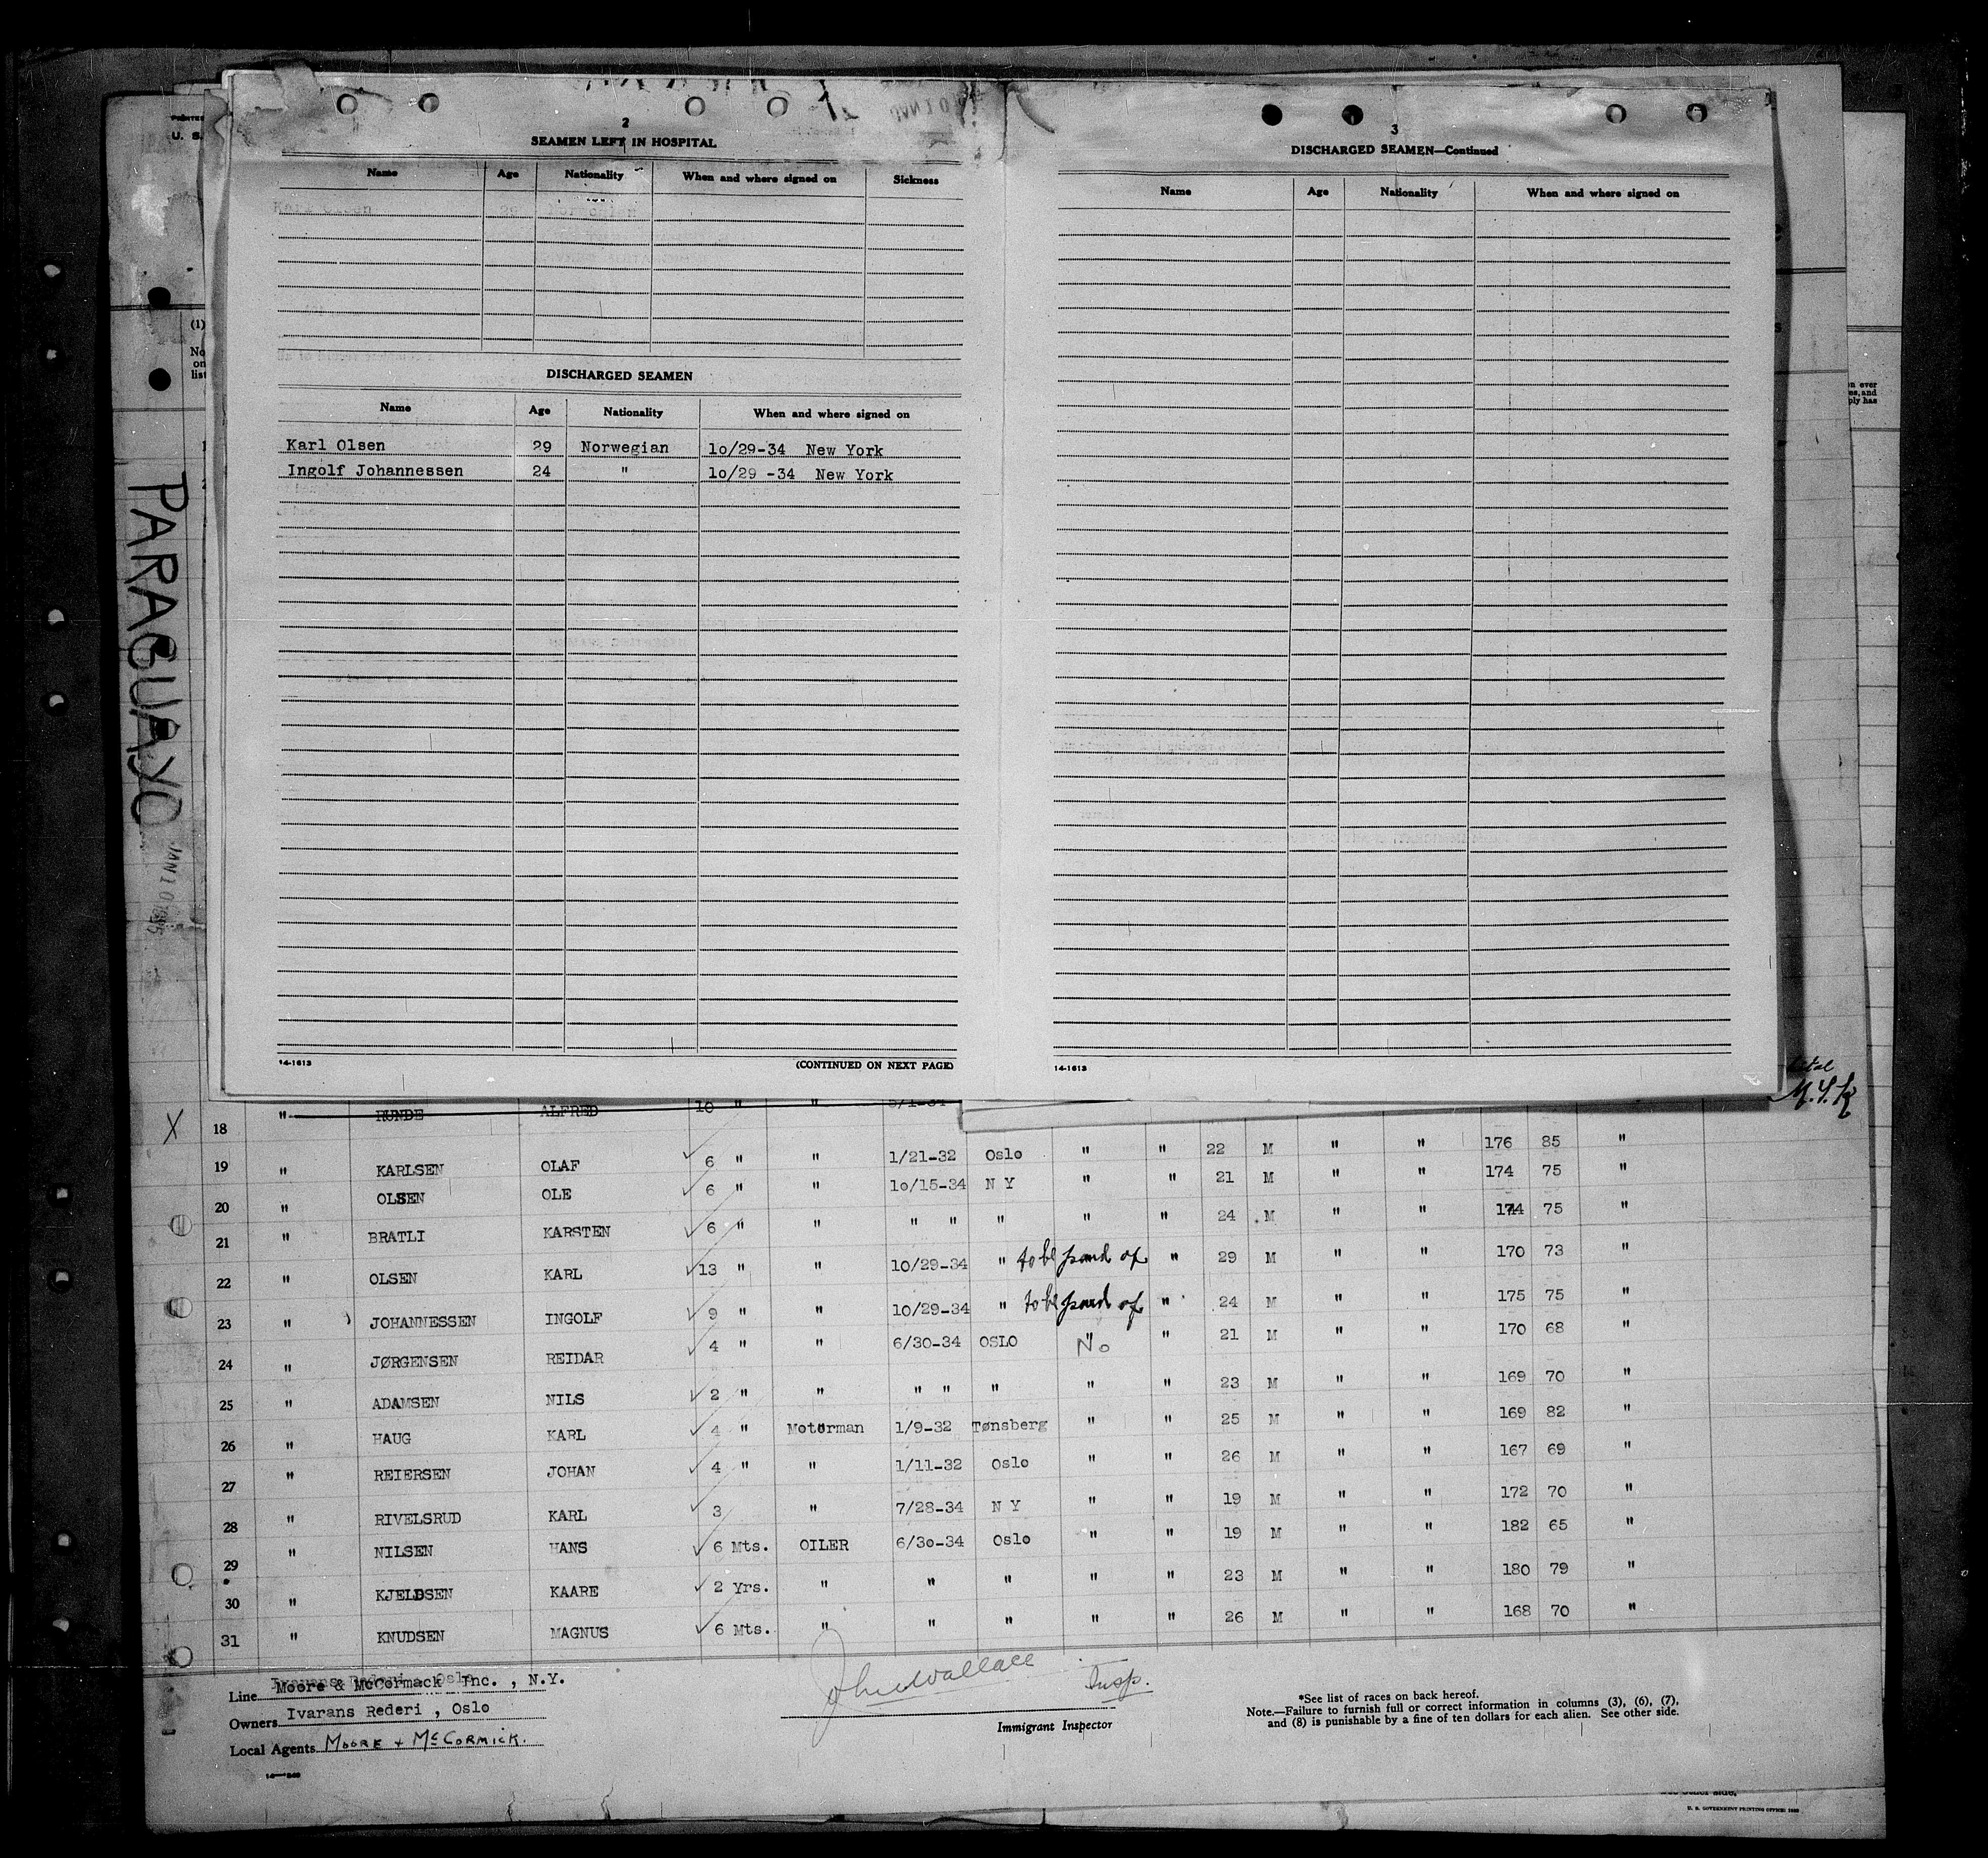 2
SEAMEN LEFT IN HOSPITAL
Name Age Nationality When and where signed on Sickness
DISCHARGED SEAMEN
Name Age Nationality When and where signed on
Karl Olsen 29 Norwegian 10/29-34 New York
Ingolf Johannessen 24 " 10/29 -34 New York
14-1613 (CONTINUED ON NEXT PAGE)
3
DISCHARGED SEAMEN—Continued
Name Age Nationality When and where signed on
14-1613
U. S.
(1)
No
on
list
PARAGUAYO
JAN 10 1935
n ever
es, and
ply has
M.Y.K
X 18 " RUNDE ALFRED 10 " "
19 " KARLSEN OLAF 6 " " 1/21-32 Oslo " " 22 M " " 176 85 "
20 " OLSEN OLE 6 " " 10/15-34 N Y " " 21 M " " 174 75 "
21 " BRATLI KARSTEN 6 " " " " " " " 24 M " " 174 75 "
22 " OLSEN KARL 13 " " 10/29-34 " to be paid of " 29 M " " 170 73 "
23 " JOHANNESSEN INGOLF 9 " " 10/29-34 " to be paid of " 24 M " " 175 75 "
24 " JØRGENSEN REIDAR 4 " " 6/30-34 OSLO No " 21 M " " 170 68 "
25 " ADAMSEN NILS 2 " " " " " " " 23 M " " 169 70 "
26 " HAUG KARL 4 " Motorman 1/9-32 Tønsberg " " 25 M " " 169 82 "
27 " REIERSEN JOHAN 4 " " 1/11-32 Oslo " " 26 M " " 167 69 "
28 " RIVELSRUD KARL 3 " 7/28-34 N Y " " 19 M " " 172 70 "
29 " NILSEN HANS 6 Mts. OILER 6/30-34 Oslo " " 19 M " " 182 65 "
30 " KJELDSEN KAARE 2 Yrs. " " " " " 23 M " " 180 79 "
31 " KNUDSEN MAGNUS 6 Mts. " " " " " 26 M " " 168 70 "
Line Moore & McCormack Inc. , N.Y.
Owners Ivarans Rederi , Oslo
Local Agents MOORE + McCORMICK.
John Wallace Insp.
Immigrant Inspector
*See list of races on back hereof.
Note.—Failure to furnish full or correct information in columns (3), (6), (7),
and (8) is punishable by a fine of ten dollars for each alien. See other side.
U. S. GOVERNMENT PRINTING OFFICE